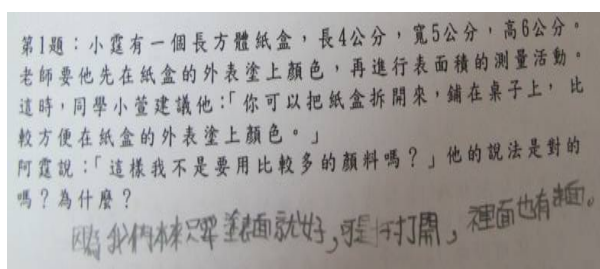 第1題：小霆有一個長方體紙盒，長4公分，寬5公分，高6公分。
老師要他先在紙盒的外表塗上顏色，再進行表面積的測量活動。
這時，同學小萱建議他：「你可以把紙盒拆開來，鋪在桌子上，比
較方便在紙盒的外表塗上顏色。」
阿霆說：「這樣我不是要用比較多的顏料嗎？」他的說法是對的
嗎？為什麼？
因為我們本來只要塗表面就好，可是打開，裡面也有面。